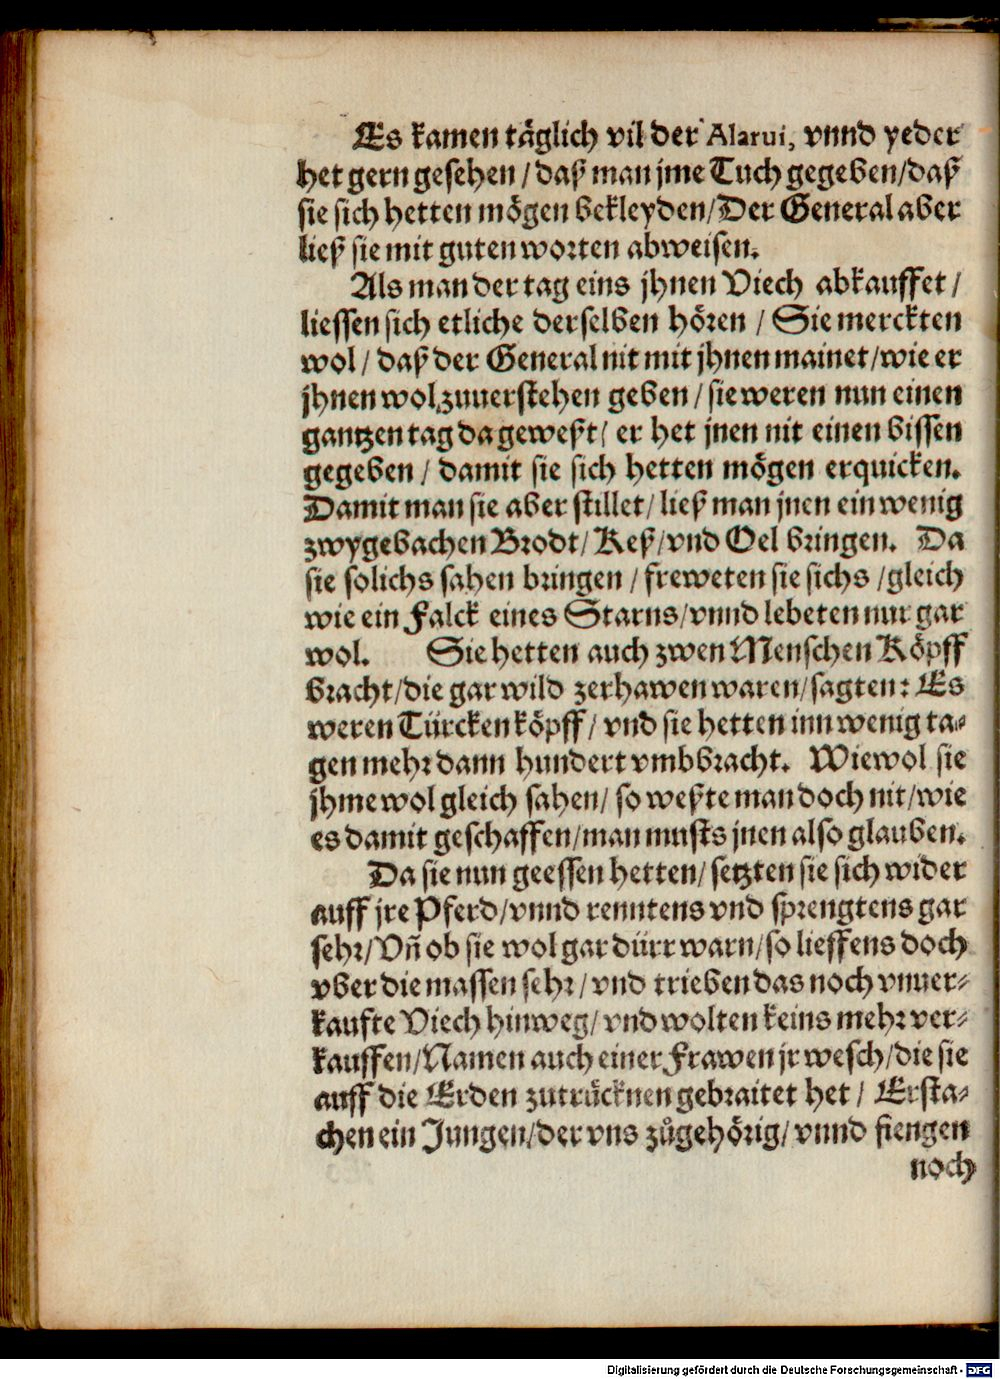 Es kamen täglich vil der Alarui, vnnd yeder
het gern gesehen / daß man jme Tuch gegeben/daß
sie sich hetten mögen bekleyden/Der General aber
ließ sie mit guten worten abweisen.
Als man der tag eins jhnen Viech abkauffet /
liessen sich etliche derselben hören / Sie merckten
wol / daß der General nit mit jhnen mainet/wie er
jhnen wol zuuerstehen geben / sie weren nun einen
gantzen tag da geweßt/ er het jnen nit einen bissen
gegeben / damit sie sich hetten mögen erquicken.
Damit man sie aber stillet/ ließ man jnen ein wenig
zwygebachen Brodt/ Keß/vnd Oel bringen. Da
sie solichs sahen bringen / freweten sie sichs /gleich
wie ein Falck eines Starns/vnnd lebeten nur gar
wol. Sie hetten auch zwen Menschen Köpff
bracht/die gar wild zerhawen waren/sagten: Es
weren Türcken köpff/ vnd sie hetten inn wenig ta-
gen mehr dann hundert vmbbracht. Wiewol sie
jhme wol gleich sahen/ so weßte man doch nit/wie
es damit geschaffen/man musts jnen also glauben.
Da sie nun geessen hetten/ setzten sie sich wider
auff jre Pferd/vnnd renntens vnd sprengtens gar
sehr/Vñ ob sie wol gar dürr warn/so lieffens doch
vber die massen sehr/ vnd trieben das noch vnuer-
kaufte Viech hinweg/ vnd wolten keins mehr ver-
kauffen/Namen auch einer Frawen jr wesch/die sie
auff die Erden zutrücknen gebraitet het / Ersta-
chen ein Jungen/der vns zůgehörig/ vnnd fiengen
noch
Digitalisierung gefördert durch die Deutsche Forschungsgemeinschaft - DFG